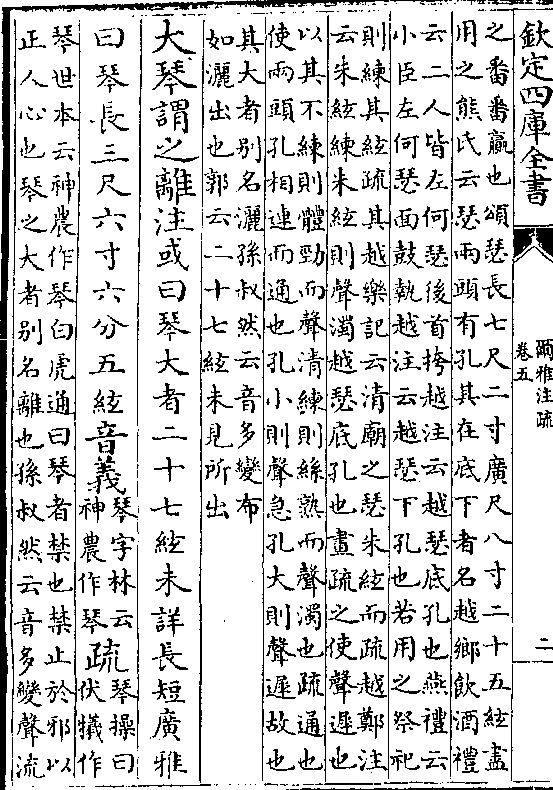 欽定四庫全書
爾雅注疏
卷五
二
之番番贏也頌瑟長七尺二寸廣尺八寸二十五絃盡
用之熊氏云瑟兩頭有孔其在底下者名越鄉飲酒禮
云二人皆左何瑟後首挎越注云越瑟底孔也燕禮云
小臣左何瑟面鼓執越注云越瑟下孔也若用之祭祀
則練其絃疏其越樂記云清廟之瑟朱絃而疏越鄭注
云朱絃練朱絃則聲濁越瑟底孔也畫疏之使聲遲也
以其不練則體勁而聲清練則絲熟而聲濁也疏通也
使兩頭孔相連而通也孔小則聲急孔大則聲遲故也
其大者别名灑孫叔然云音多變布
如灑出也郭云二十七絃未見所出
大琴謂之離注或曰琴大者二十七絃未詳長短廣雅
曰琴長三尺六寸六分五絃音義琴字林云神農作琴疏琴操曰伏犠作
琴世本云神農作琴白虎通曰琴者禁也禁止於邪以
正人心也琴之大者别名離也孫叔然云音多變聲流